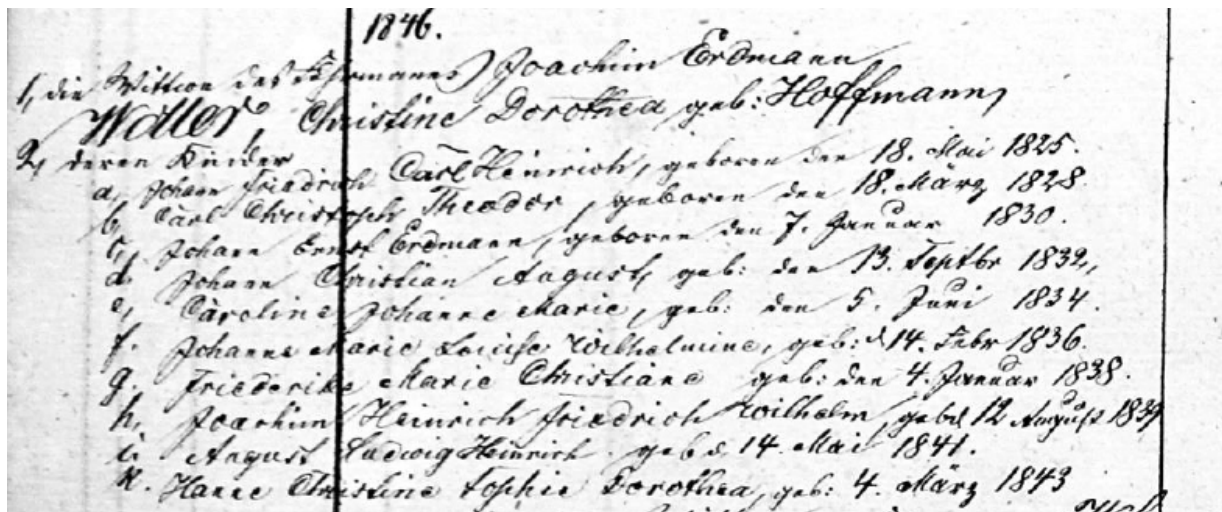 1846.
1, die Wittwe des Joachim Erdmann
Christine Dorothea, geb: Hoffmann,
2, deren Kinder
a, Johann Friedrich Carl Heinrich, geboren den 18. Mai 1825.
b, Carl Christoph Theodor, geboren den 18. März 1828.
c, Johann Ernst Erdmann, geboren den 7. Januar 1830.
d, Johann Christian August, geb: den 13. Septbr 1832,
e, Caroline Johanne Marie, geb: den 5. Juni 1834.
f. Johanne Marie Louise Wilhelmine, geb: d 14. Febr 1836.
g. Friederike Marie Christiane geb: den 4. Januar 1838.
h, Joachim Heinrich Friedrich Wilhelm, geb d 12 August 1839
i. August Ludwig Heinrich. geb d. 14. Mai 1841.
k. Hanne Christine Sophie Dorothea, geb: 4. März 1843